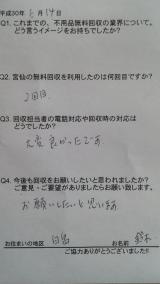 平成30年 5月14日
Q1.これまでの、不用品無料回収の業界について。
どう言うイメージをお持ちでしたか?
Q2.宮仙の無料回収を利用したのは何回目ですか?
2回目
Q3.回収担当者の電話対応や回収時の対応は
どうでしたか?
大変良かったです
Q4.今後も回収をお願いしたいと思われましたか?
ご意見・ご要望がありましたらお願い致します。
お願いしたいと思います
お住まいの地区 お名前 鈴木
ご協力ありがとうございました!!